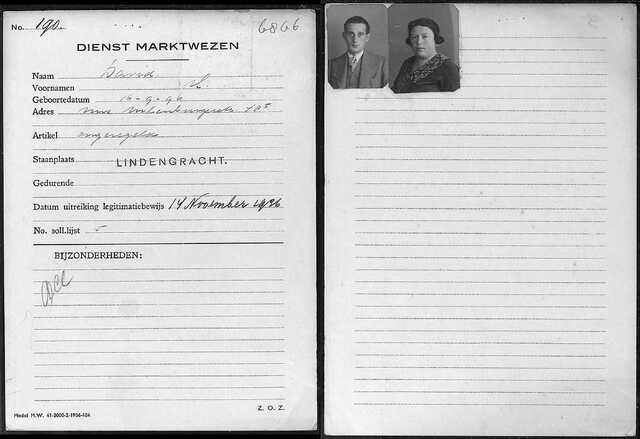 No. 190. 6866
DIENST MARKTWEZEN
Naam David
Voornamen L.
Geboortedatum 16-9-96
Adres 18ᴵ
Artikel ongeregeld
Staanplaats LINDENGRACHT.
Gedurende
Datum uitreiking legitimatiebewijs 14 November 1936
No. soll.lijst
BIJZONDERHEDEN:
Model M.W. 41-2000-2-1936-424
Z. O. Z.